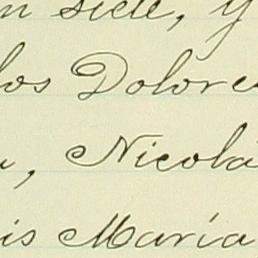 n siete, y
los Dolores
, Nicolá
is María